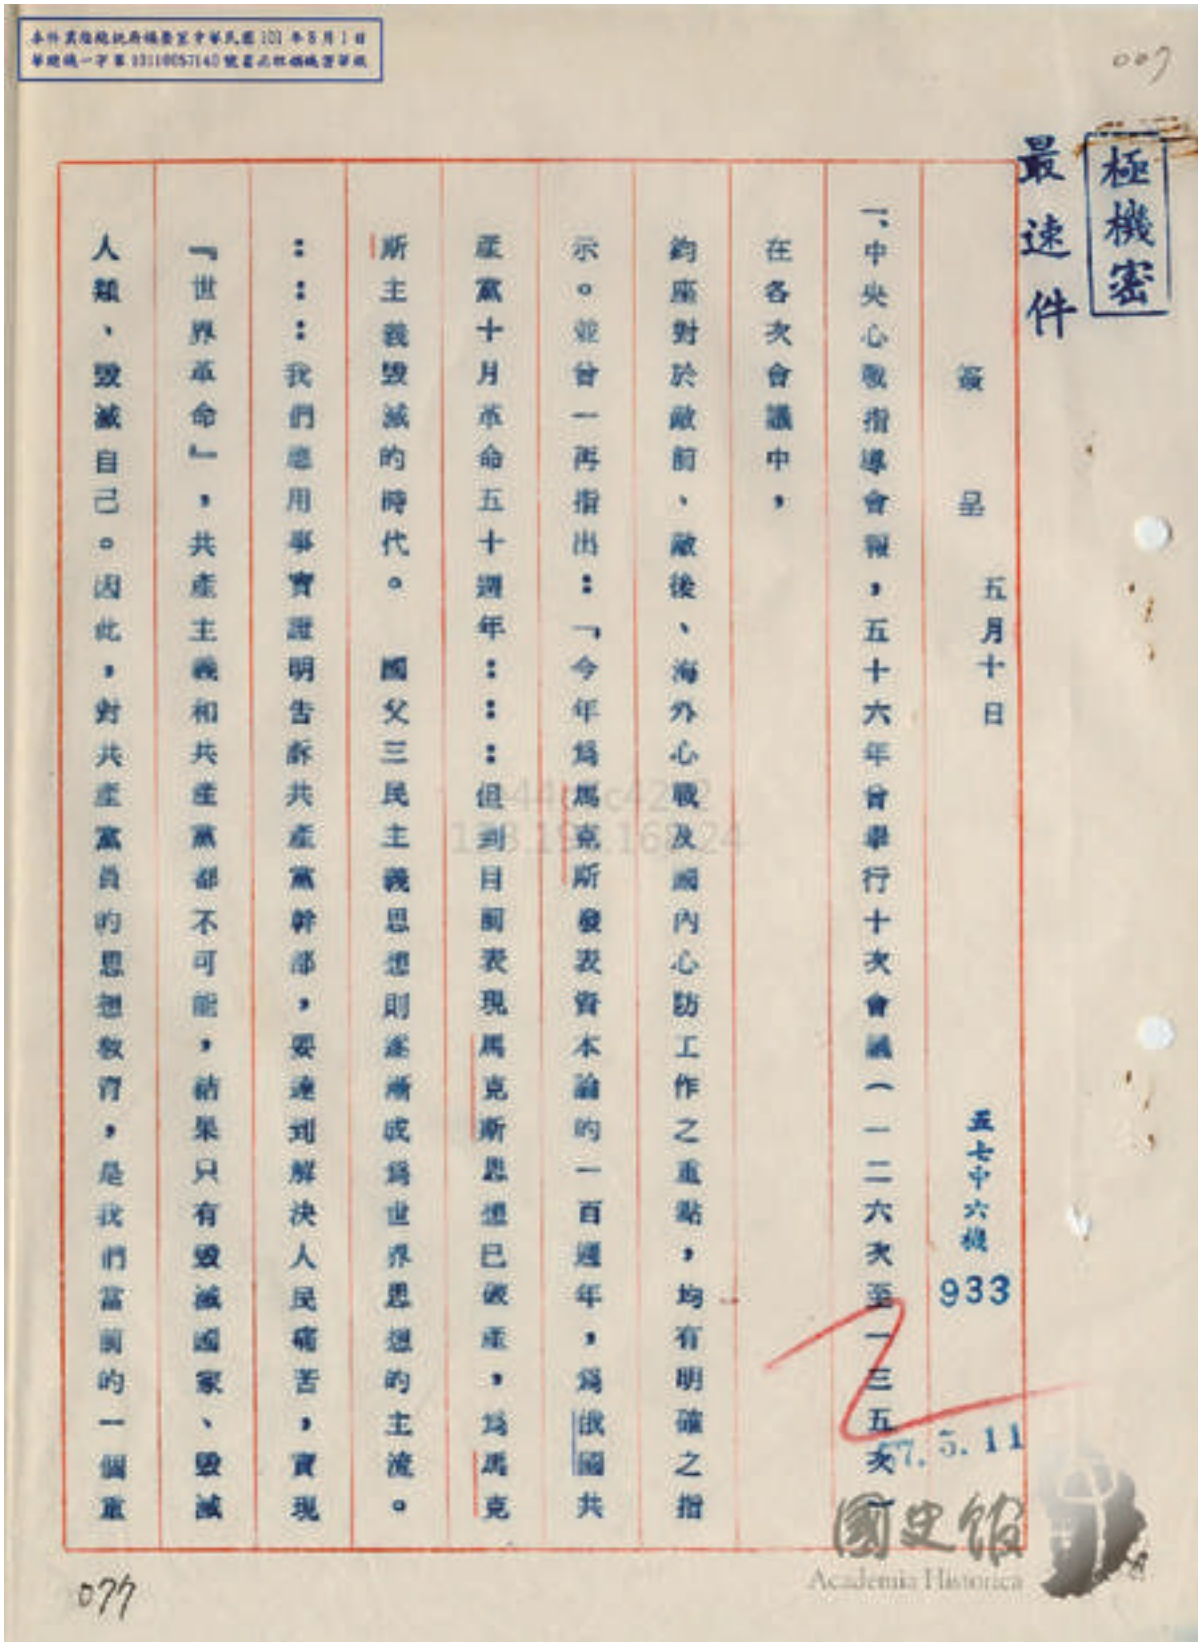 本件業經總統府檔案室中華民國101年8月1日
華總機一字第10110057140號書函註銷機密等級
007
極機密
最速件
簽呈 五月十日
五七中六機
933
57.5.11
一、中央心戰指導會報，五十六年曾舉行十次會議（一二六次至一三五次）
在各次會議中，
鈞座對於敵前、敵後、海外心戰及國內心防工作之重點，均有明確之指
示。並曾一再指出：「今年為馬克斯發表資本論的一百週年，為俄國共
產黨十月革命五十週年：：：但到目前表現馬克斯思想已破產，為馬克
斯主義毀滅的時代。 國父三民主義思想則逐漸成為世界思想的主流。
：：：我們應用事實證明告訴共產黨幹部，要達到解決人民痛苦，實現
『世界革命』，共產主義和共產黨都不可能，結果只有毀滅國家、毀滅
人類、毀滅自己。因此，對共產黨員的思想教育，是我們當前的一個重
077
國史館
Academia Historica